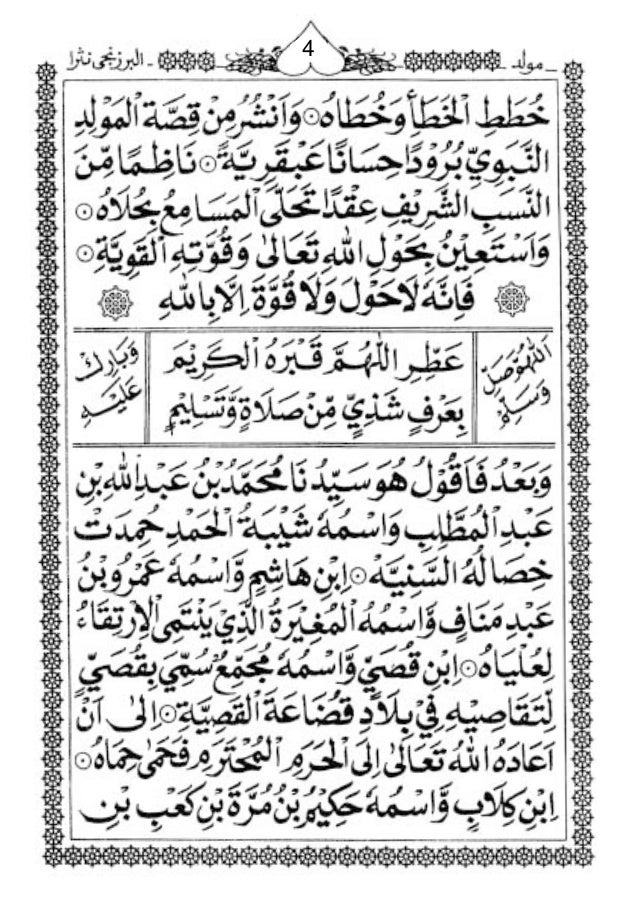 مولد
4
البرزنجي نثرا
خُطَطِ الْخَطَأِ وَخُطَاهُ ۞ وَاَنْشُرُ مِنْ قِصَّةِ الْمَوْلِدِ
النَّبَوِيِّ بُرُوْدًا حِسَانًا عَبْقَرِيَّةً ۞ نَاظِمًا مِّنَ
النَّسَبِ الشَّرِيْفِ عِقْدًا تَحَلَّى الْمَسَامِعُ بِحُلَاهُ ۞
وَاَسْتَعِيْنُ بِحَوْلِ اللهِ تَعَالٰى وَقُوَّتِهِ الْقَوِيَّةِ ۞
فَاِنَّهُ لَاحَوْلَ وَلَا قُوَّةَ اِلَّا بِاللهِ
اَللّٰهُمَّ صَلِّ وَسَلِّمْ
عَطِّرِ اللّٰهُمَّ قَبْرَهُ الْكَرِيْمَ
بِعَرْفٍ شَذِيٍّ مِّنْ صَلَاةٍ وَّتَسْلِيْمٍ
وَبَارِكْ عَلَيْهِ
وَبَعْدُ فَاَقُوْلُ هُوَ سَيِّدُنَا مُحَمَّدُ بْنُ عَبْدِ اللهِ بْنِ
عَبْدِ الْمُطَّلِبِ وَاسْمُهُ شَيْبَةُ الْحَمْدِ حُمِدَتْ
خِصَالُهُ السَّنِيَّه ۞ اِبْنِ هَاشِمٍ وَّاسْمُهُ عَمْرُو بْنُ
عَبْدِ مَنَافٍ وَّاسْمُهُ الْمُغِيْرَةُ الَّذِيْ يَنْتَمِى الْاِرْتِقَاءُ
لِعُلْيَاهُ ۞ اِبْنِ قُصَيٍّ وَّاسْمُهُ مُجَمِّعٌ سُمِّيَ بِقُصَيٍّ
لِّتَقَاصِيْهِ فِيْ بِلَادِ قُضَاعَةَ الْقَصِيَّةِ ۞ اِلٰى اَنْ
اَعَادَهُ اللهُ تَعَالٰى اِلَى الْحَرَمِ الْمُحْتَرَمِ فَحَمٰى حِمَاهُ ۞
اِبْنِ كِلَابٍ وَّاسْمُهُ حَكِيْمُ بْنُ مُرَّةَ بْنِ كَعْبِ بْنِ